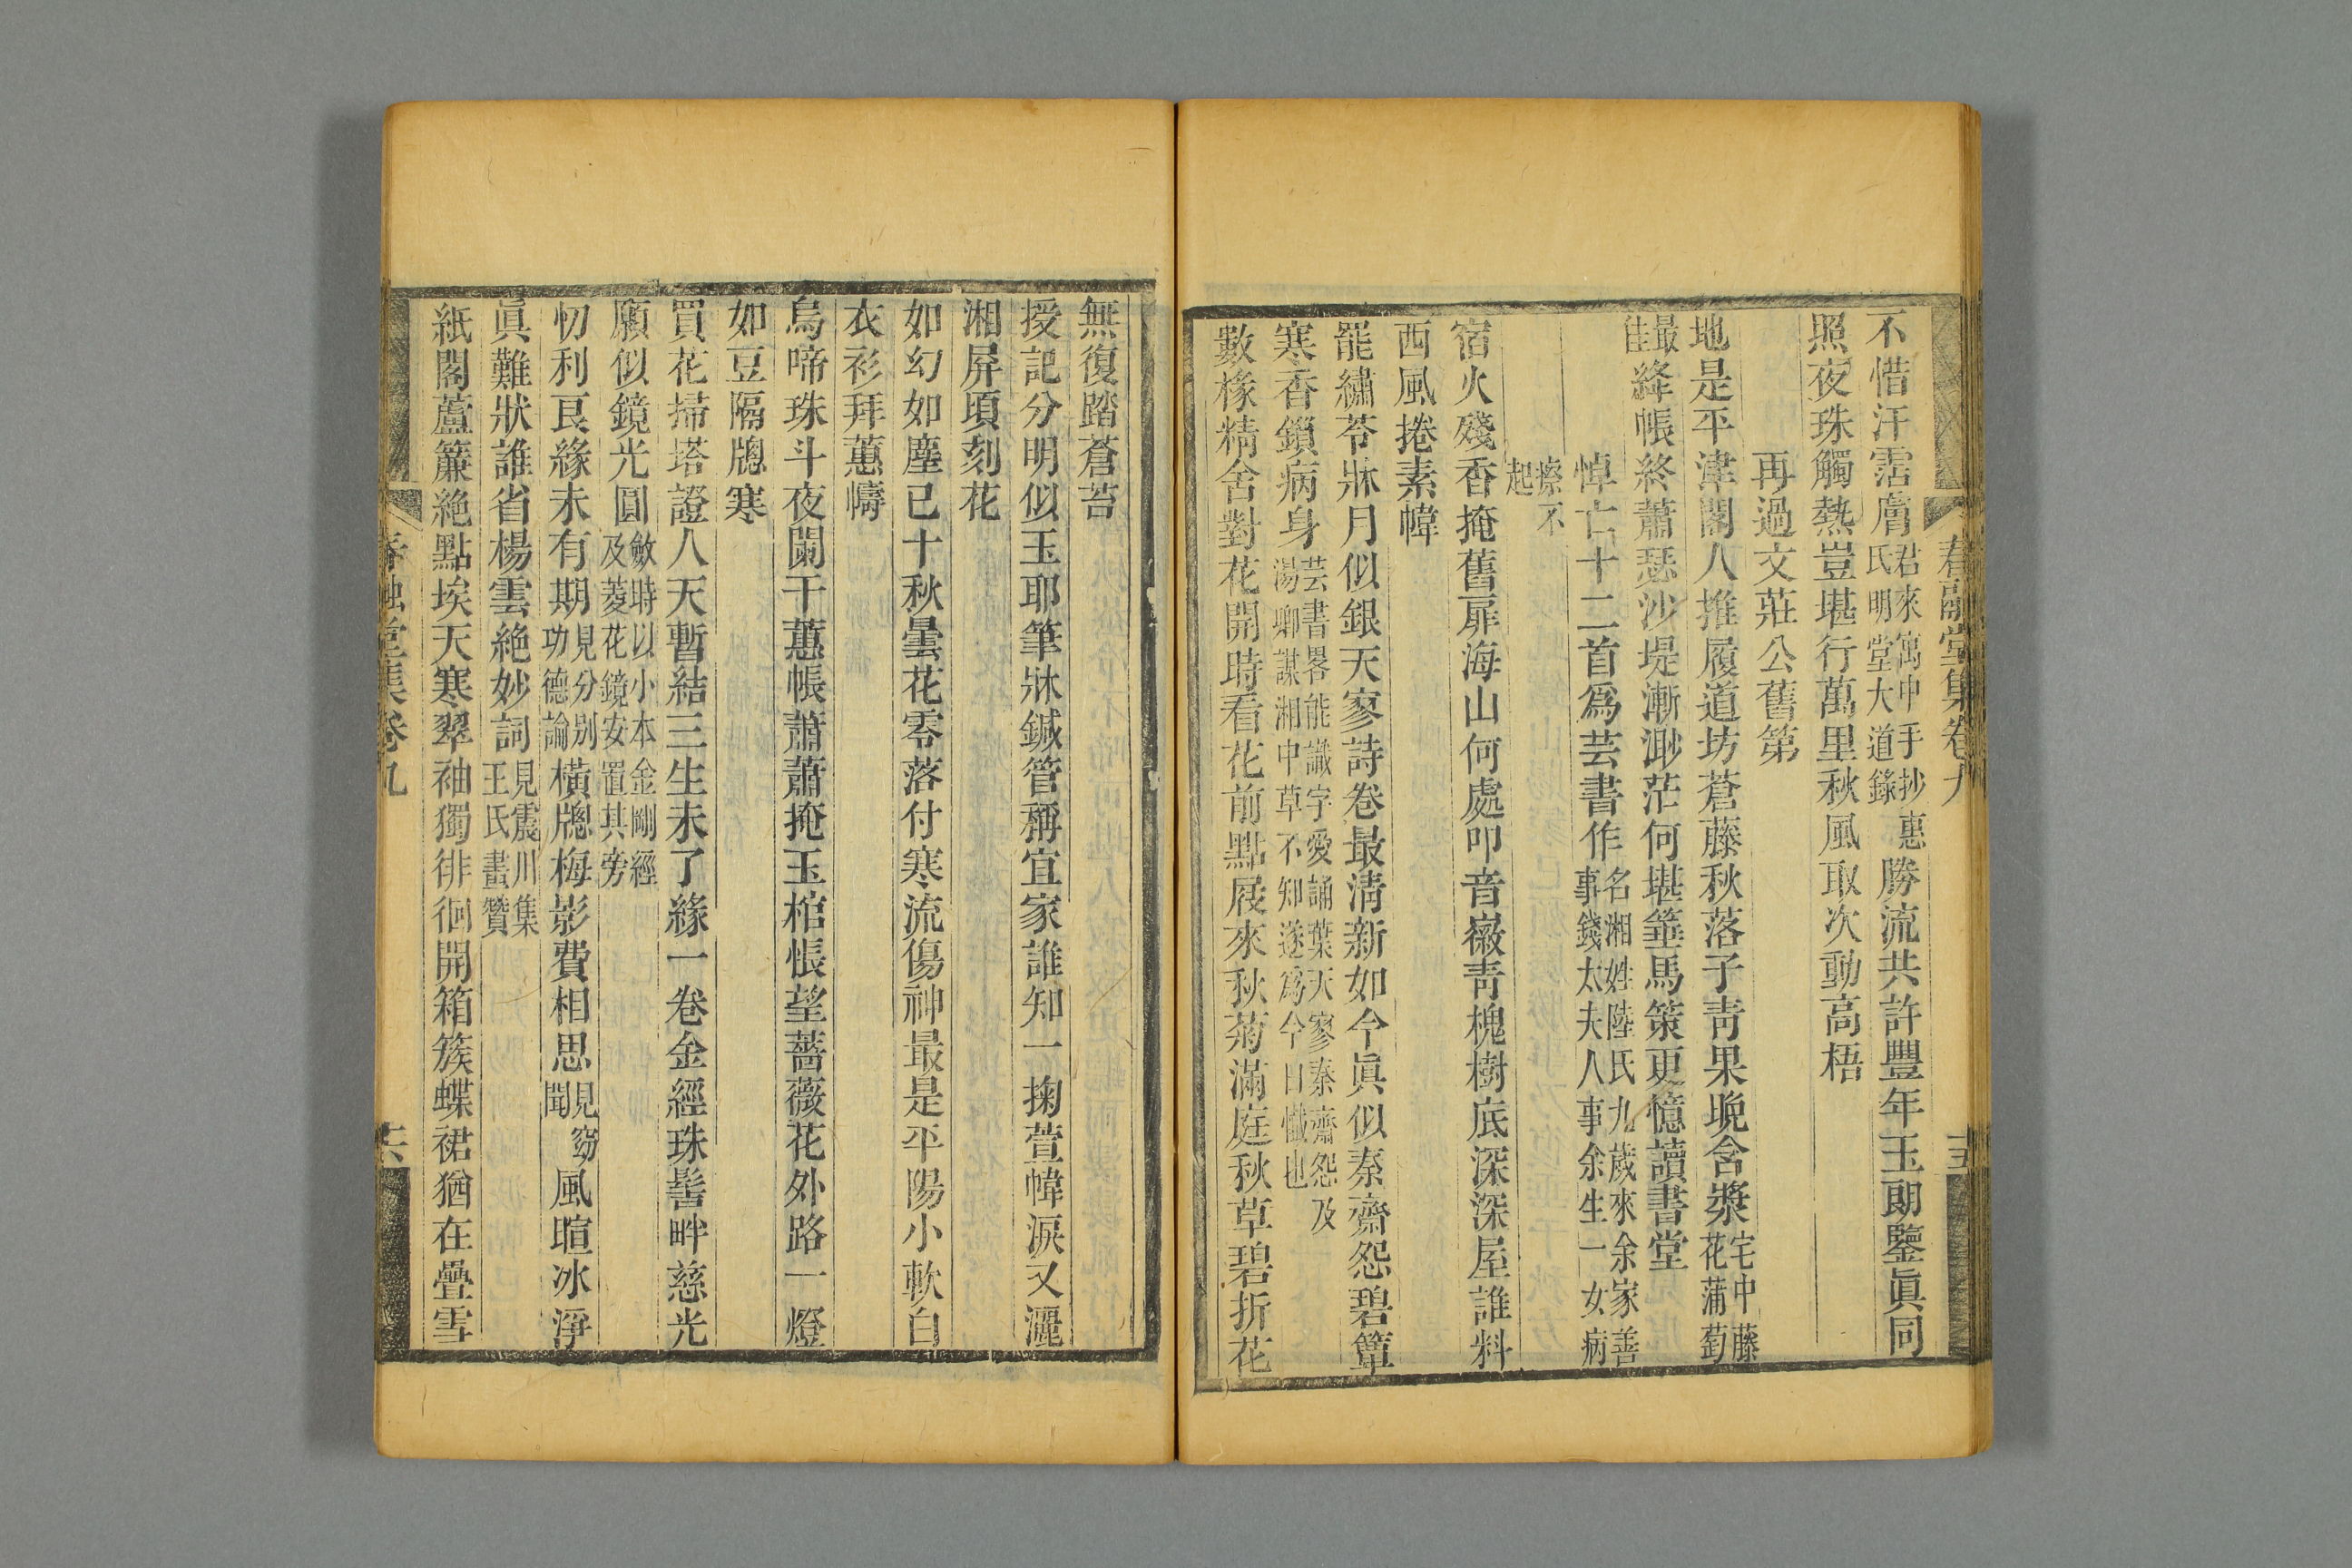 春融堂集卷九
十五
不惜汗霑膚君來寓中手抄惠氏明堂大道錄勝流共許豐年玉朗鑒眞同
照夜珠觸熱豈堪行萬里秋風取次動高梧
再過文莊公舊第
地是平津閣人推履道坊蒼藤秋落子靑果晚含漿宅中藤花蒲萄
最佳絳帳終蕭瑟沙堤漸渺茫何堪箠馬策更憶讀書堂
悼亡十二首爲芸書作名湘姓陸氏九歲來余家善事錢太夫人事余生一女病
瘵不起
宿火殘香掩舊扉海山何處叩音徽靑槐樹底深深屋誰料
西風捲素幃
罷繡苓牀月似銀天寥詩卷最淸新如今眞似秦齋怨碧簟
寒香鎖病身芸書畧能識字愛誦葉天寥秦齋怨及湯卿謀湘中草不知遂爲今日懺也
數椽精舍對花開時看花前點屐來秋菊滿庭秋草碧折花
無復踏蒼苔
授記分明似玉耶筆牀鍼管稱宜家誰知一掬萱幃淚又灑
湘屛頃刻花
如幻如塵已十秋曇花零落付寒流傷神最是平陽小軟白
衣衫拜蕙幬
烏啼珠斗夜闌干蕙帳蕭蕭掩玉棺悵望薔薇花外路一燈
如豆隔牕寒
買花掃塔證人天暫結三生未了緣一卷金經珠髻畔慈光
願似鏡光圓斂時以小本金剛經及菱花鏡安置其旁
忉利良緣未有期見分别功德論橫牕梅影費相思見窈聞風暄冰淨
眞難狀誰省楊雲絶妙詞見震川集王氏畫贊
紙閣蘆簾絶點埃天寒翠袖獨徘徊開箱簇蝶裙猶在疊雪
春融堂集卷九
十六